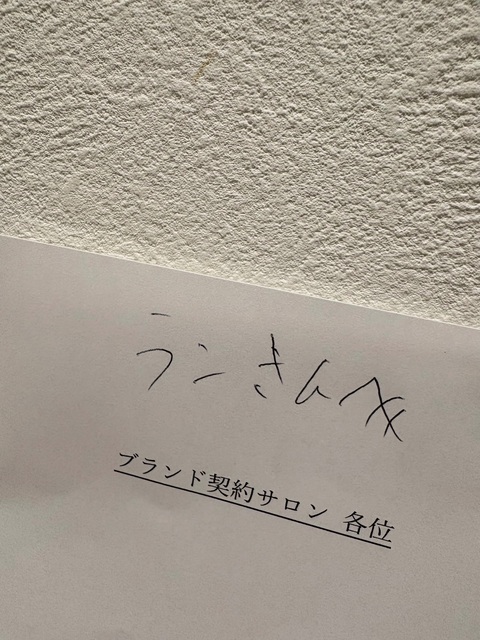 ランさんへ
ブランド契約サロン 各位